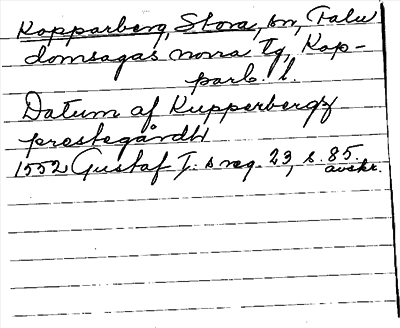 Kopparberg, Stora, sn, Falu
domsagas norra tg, Kop-
parb. l.
Datum af Kupperbergz
prestegårdh
1552 Gustaf I:s reg. 23, s. 85.
avskr.